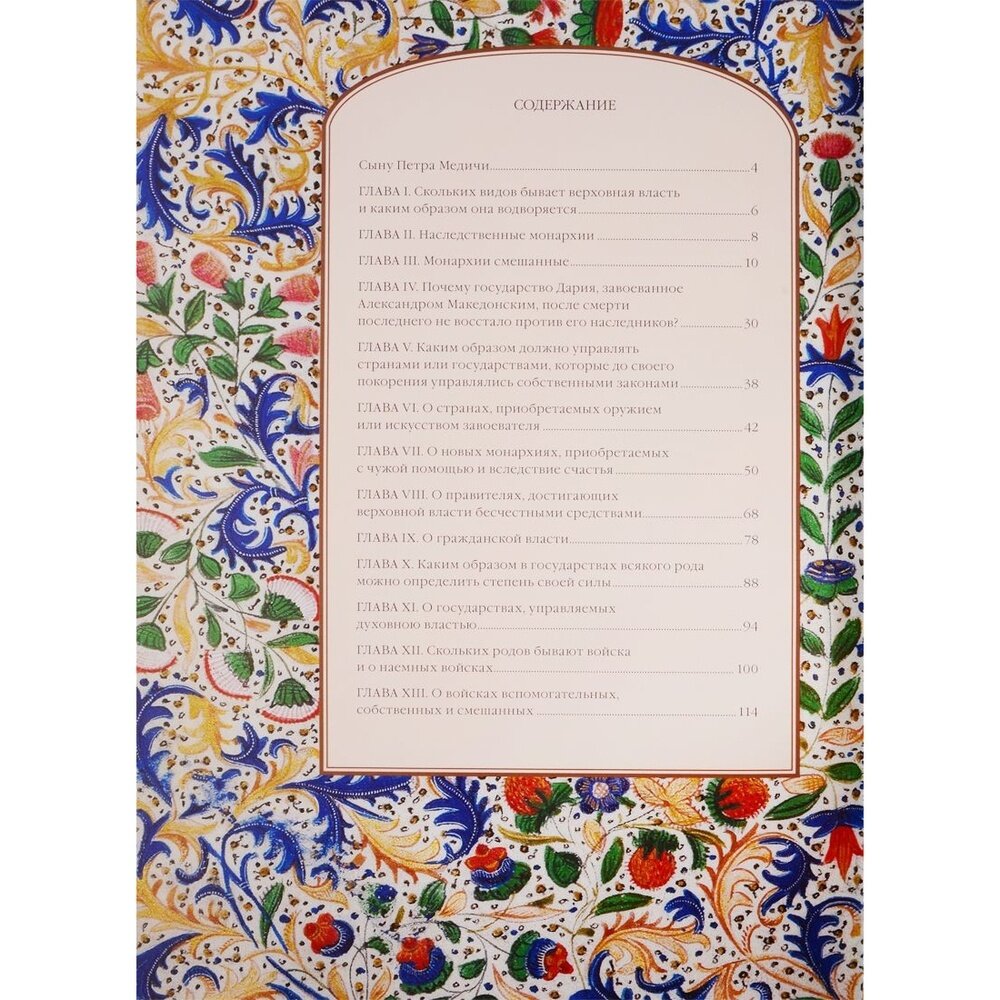 СОДЕРЖАНИЕ
Сыну Петра Медичи........4
ГЛАВА I. Скольких видов бывает верховная власть
и каким образом она водворяется........6
ГЛАВА II. Наследственные монархии........8
ГЛАВА III. Монархии смешанные........10
ГЛАВА IV. Почему государство Дария, завоеванное
Александром Македонским, после смерти
последнего не восстало против его наследников?........30
ГЛАВА V. Каким образом должно управлять
странами или государствами, которые до своего
покорения управлялись собственными законами........38
ГЛАВА VI. О странах, приобретаемых оружием
или искусством завоевателя........42
ГЛАВА VII. О новых монархиях, приобретаемых
с чужой помощью и вследствие счастья........50
ГЛАВА VIII. О правителях, достигающих
верховной власти бесчестными средствами........68
ГЛАВА IX. О гражданской власти........78
ГЛАВА X. Каким образом в государствах всякого рода
можно определить степень своей силы........88
ГЛАВА XI. О государствах, управляемых
духовною властью........94
ГЛАВА XII. Скольких родов бывают войска
и о наемных войсках........100
ГЛАВА XIII. О войсках вспомогательных,
собственных и смешанных........114